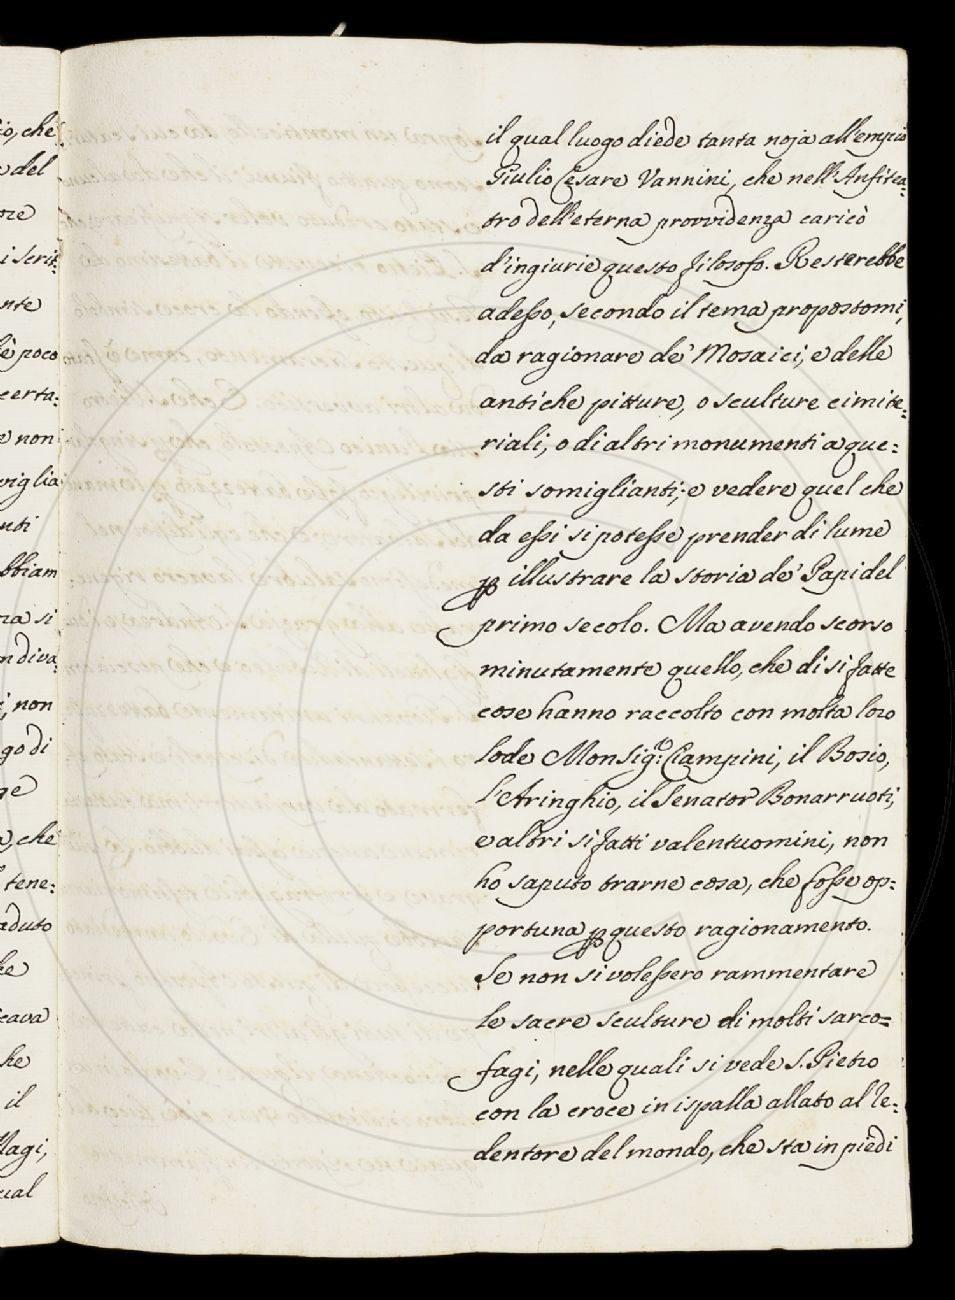 io, che
e del
ore
i scrit:
nte
è poco
certa:
e non
viglia
nti
bbiam
ma si
ndiva:
i, non
go di
ge
a, che
l tene:
aduto
he
cava
he
il
Magi,
ual
il qual luogo diede tanta noja all'empio
Giulio Cesare Vannini, che nell'Anfitea:
tro dell'eterna provvidenza caricò
d'ingiurie questo filosofo. Resterebbe
adesso, secondo il tema propostomi,
da ragionare de' Mosaici, e delle
antiche pitture, o sculture cimite:
riali, o di altri monumenti a que:
sti somiglianti; e vedere quel che
da essi si potesse prender di lume
ꝑ illustrare la storia de' Papi del
primo secolo. Ma avendo scorso
minutamente quello, che di sì fatte
cose hanno raccolto con molta loro
lode Monsig:re Ciampini, il Bosio,
l'Aringhio, il Senator Bonarruoti,
e altri sì fatti valentuomini, non
ho saputo trarne cosa, che fosse op:
portuna ꝑ questo ragionamento.
Se non si volessero rammentare
le sacre sculture di molti sarco=
fagi, nelle quali si vede S. Pietro
con la croce in ispalla allato al Re:
dentore del mondo, che sta in piedi